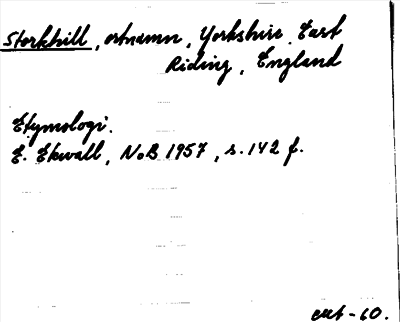 Storkhill, ortnamn, Yorkshire East
Riding, England
Etymologi.
E. Ekwall, NoB 1957, s. 142 f.
-60.